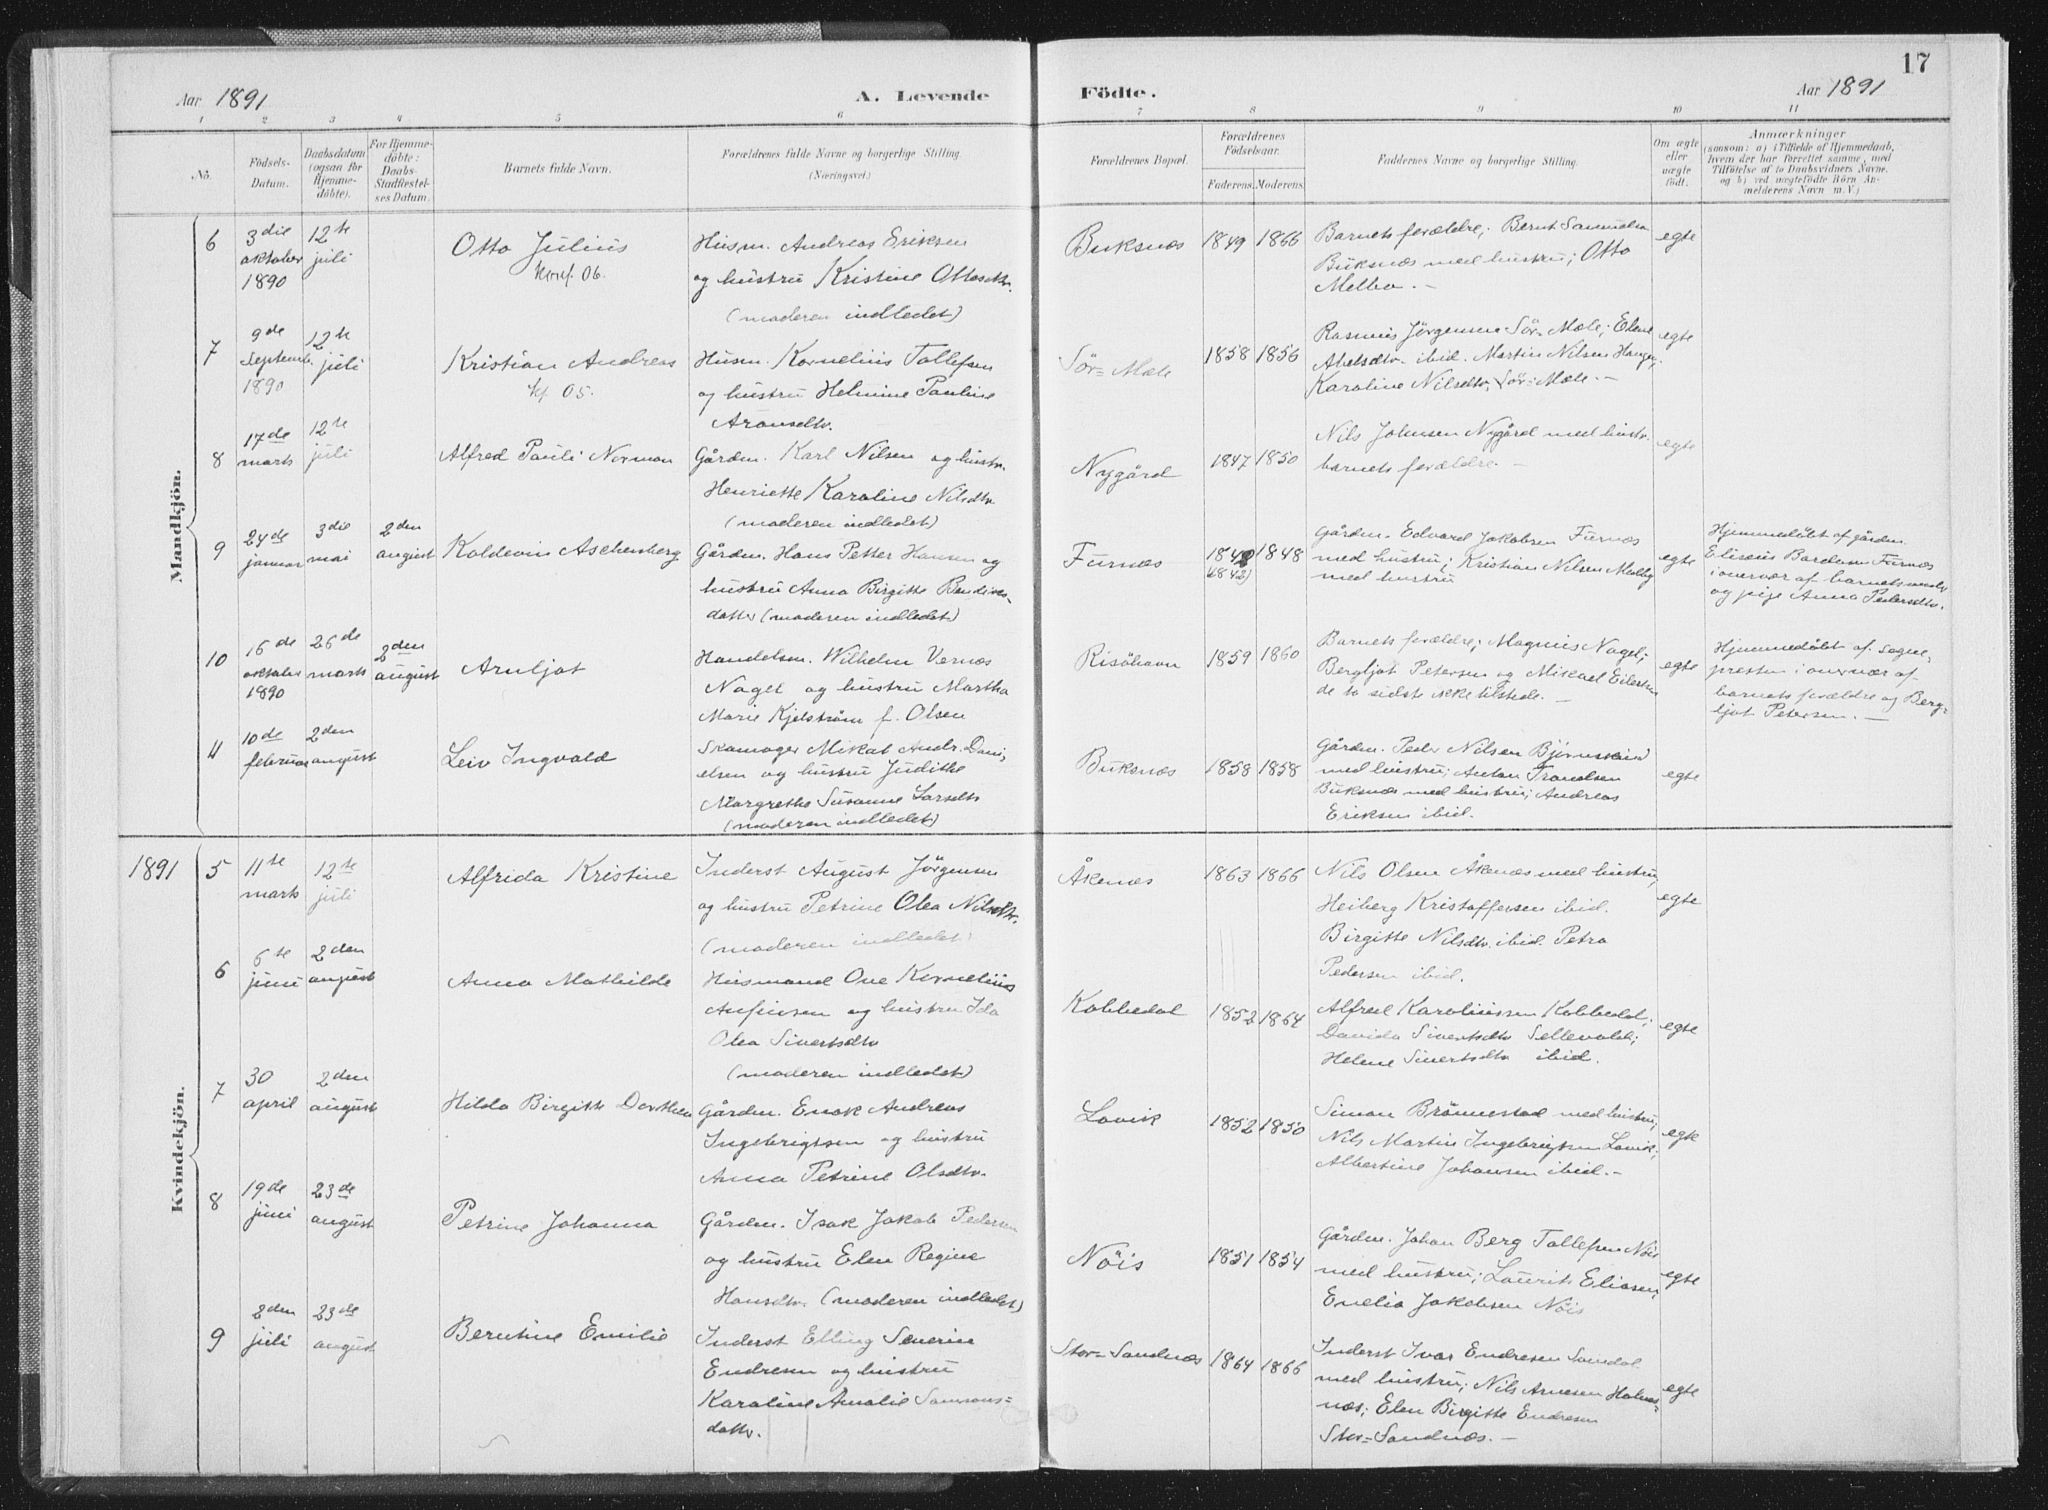 17
Aar 1891
A. Levende
Födte.
Aar 1891
1 2 3 4 5 6 7 8 9 10 11
No.
Födsels-
Datum.
Daabsdatum
(ogsaa for
Hjemme-
döbte).
For Hjemme-
döbte:
Daabs-
Stadfæstel-
ses Datum.
Barnets fulde Navn.
Forældrenes fulde Navne og borgerlige Stilling.
(Næringsvei.)
Forældrenes Bopæl.
Forældrenes
Födselsaar.
Faderens. Moderens.
Faddernes Navne og borgerlige Stilling.
Om ægte
eller
uægte
födt.
Anmærkninger
(saasom: a) i Tilfælde af Hjemmedaab,
hvem der har forrettet samme, med
Tilföielse af to Daabsvidners Navne.
og b) ved uægtefödte Börn An-
melderens Navn m. V.)
Mandkjön.
6
3die
oktober
1890
12te
juli
Otto Julius
konf. 06.
Husm. Andreas Eriksen
og hustru Kristine Ottosdtr.
(moderen indledet)
Buksnæs
1849 1866
Barnets forældre; Bernt Samuelsen
Buksnæs med hustru; Otto
Melbo. —
egte
7
9de
septemb.
1890
12te
juli
Kristian Andreas
kf 05.
Husm. Kornelius Tollefsen
og hustru Helmine Pauline
Aronsdtr.
Sör-Mæle
1858 1856
Rasmus Jörgensen Sör-Mæle; Elene
Abelsdtr. ibid. Martin Nilsen Haugen;
Karoline Nilsdtr. Sör-Mæle. —
egte
8
17de
marts
12te
juli
Alfred Pauli Norman
Gården. Karl Nilsen og hustr.
Henriette Karoline Nilsdtr
(moderen indledet)
Nygård
1847 1850
Nils Johnsen Nygård med hustr.
barnets forældre. —
egte
9
24de
januar
3die
mai
2den
august
Koldevin Aschenberg
Gården. Hans Petter Hansen og
hustru Anna Birgitte Bendiks-
datter (moderen indledet)
Furnæs
1848
(1842)
Gården. Edvard Jakobsen Furnæs
med hustru; Kristian Nilsen Melby
med hustru
egte
Hjemmedöbt af gården.
Eliseus Bardosen Furnæs
i overvær af barnets moder
og pige Anna Pedersdtr.
10
16de
oktober
1890
26de
marts
2den
august
Arnljot
Handelsm. Wilhelm Vernæs
Nagel og hustru Martha
Marie Kjelström f. Olsen
Risöhavn
1859 1860
Barnets forældre; Magnus Nagel;
Bergljot Petersen og Mikael Eilertsen
de to sidste ikke tilstede. —
egte
Hjemmedöbt af sogne-
presten i overvær af
barnets forældre og Berg-
ljot Petersen. —
11
10de
februar
2den
august
Leiv Ingvald
Skomager Mikal Andr. Dani-
elsen og hustru Judithe
Margrethe Susanne Larsdtr
(moderen indledet)
Buksnæs
1858 1858
Gården. Peder Nilsen Björnskind
med hustru; Anton Trondsen
Buksnæs med hustru; Andreas
Eriksen ibid.
egte
1891
Kvindekjön.
5
11te
marts
12te
juli
Alfrida Kristine
Inderst August Jörgensen
og hustru Petrine Olea Nilsdtr.
(moderen indledet)
Åkenæs
1863 1866
Nils Olsen Åkenæs med hustru;
Heiberg Kristoffersen ibid.
Birgitte Nilsdtr. ibid. Petra
Pedersen ibid.
egte
6
6te
juni
2den
august
Anna Mathilde
Husmand Ove Kornelius
Anfinsen og hustru Ida
Olea Sivertsdtr
(moderen indledet)
Kobbedal
1852 1864
Alfred Karoliussen Kobbedal;
Davida Sivertsdtr Sellevold;
Helene Sivertsdtr ibid.
egte
7
30
april
2den
august
Hilda Birgitte Dorthea
Gården. Enok Andreas
Ingebrigtsen og hustru
Anna Petrine Olsdtr.
Lovik
1852 1850
Simon Brönnestad med hustru;
Nils Martin Ingebrigtsen Lovik;
Albertine Johansen ibid. —
egte
8
19de
juni
23de
august
Petrine Johanna
Gården. Isak Jakob Pedersen
og hustru Elen Regine
Hansdtr. (moderen indledet)
Nöis
1851 1854
Gården. Johan Berg Tollefsen Nöis
med hustru; Laurits Eliasen,
Enelia Jakobsen Nöis
egte
9
2den
juli
23de
august
Berntine Emilie
Inderst Elling Severin
Endresen og hustru
Karoline Amalie Samsons-
datter.
Stor-Sandnæs
1864 1866
Inderst Ivar Endresen Somdal
med hustru; Nils Arnesen Holmes-
næs; Elen Birgitte Endresen
Stor-Sandnæs. —
egte